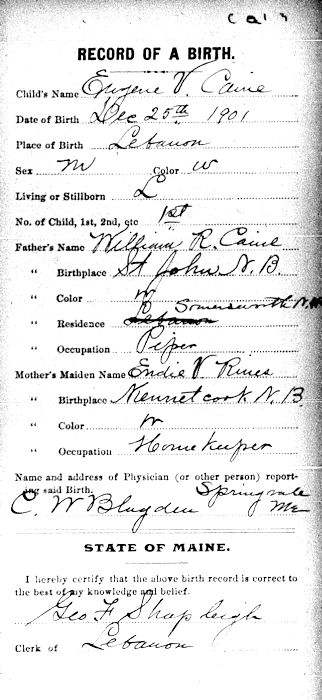 RECORD OF A BIRTH.
Child's Name Eugene V. Caine
Date of Birth Dec 25th 1901
Place of Birth Lebanon
Sex M Color W
Living or Stillborn L
No. of Child, 1st, 2nd, etc 1st
Father's Name William R. Caine
" Birthplace St John N. B
" Color W
" Residence Lebanon Somersworth N. H
" Occupation Piper
Mother's Maiden Name V Rines
" Birthplace Kennetcook N. B
" Color W
" Occupation Homekeeper
Name and address of Physician (or other person) report-
ing said Birth. Springvale
C. W Blagden Me
STATE OF MAINE.
I hereby certify that the above birth record is correct to
the best of my knowledge and belief.
Geo F Shapleigh
Clerk of Lebanon